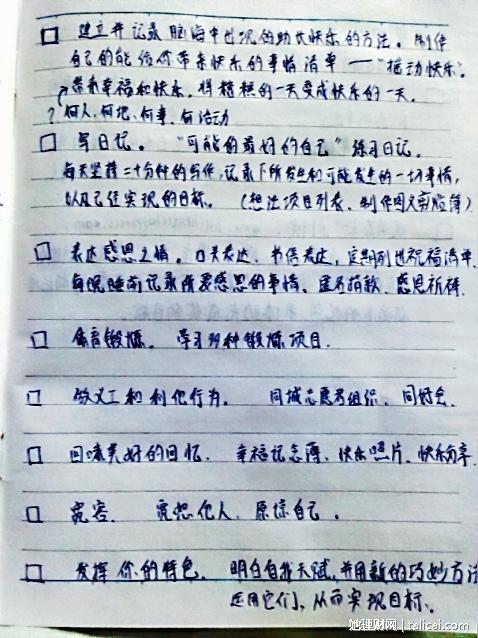 □ 建立并记录脑海中出现的助长快乐的方法。制作
自己的能给你带来快乐的事情清单——“推动快乐”。
带来幸福和快乐，将糟糕的一天变成快乐的一天。
? 何人、何地、何事、何活动
□ 写日记。“可能的最好的自己”练习日记。
每天坚持二十分钟的写作，记录下所发生和可能发生的一切事情，
以及已经实现的目标。（想法项目列表、制作图文剪贴簿）
□ 表达感恩之情。口头表达、书信表达，定期列出祝福清单
每晚睡前记录所要感恩的事情、匿名捐款、感恩祈祷.
□ 体育锻炼。学习多种锻炼项目.
□ 做义工和利他行为。 同城志愿者组织、同好会.
□ 回味美好的回忆. 幸福记忆簿、快乐照片、快乐分享
□ 宽容. 宽恕他人、原谅自己。
□ 发挥你的特色. 明白自我天赋，并用新的巧妙方法
运用它们，从而实现目标.
她理财网 | talicai.com